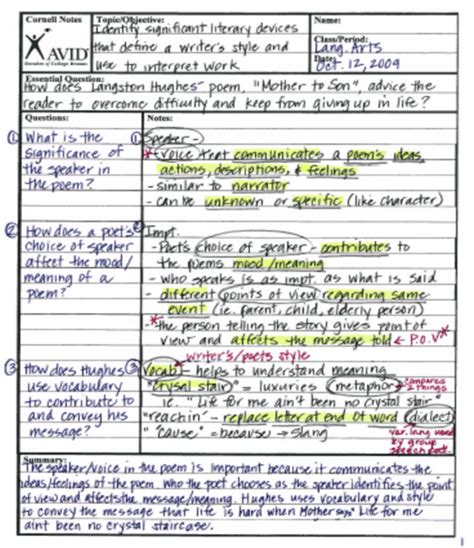 Cornell Notes
Topic/Objective:
Name:
Identify significant literary devices
that define a writer's style and
use to interpret work
AVID
Decades of College Dreams
Class/Period:
Lang. Arts
Date:
Oct. 12, 2009
Essential Question:
How does Langston Hughes' poem, "Mother to Son", advice the
reader to overcome difficulty and keep from giving up in life?
Questions:
Notes:
① What is the
significance of
the speaker in
the poem?
① Speaker -
* voice that communicates a poem's ideas,
actions, descriptions, & feelings
- similar to narrator
- can be unknown or specific (like character)
② How does a poet's
choice of speaker
affect the mood/
meaning of a
poem?
② Impt.
- Poet's choice of speaker - contributes to
the poems mood/meaning
- who speaks is as impt. as what is said
- different points of view regarding same
event (ie. parent, child, elderly person)
* - the person telling the story gives point of
view and affects the message told ← P.O.V*
③ How does Hughes
use vocabulary
to contribute to
and convey his
message?
writer's/poets style
③ Vocab - helps to understand meaning
"Crysal stair" = luxuries (metaphor) * compares
2 things
ie. "Life for me ain't been no crystal stair"
"reachin" - replace letter at end of word (dialect)
"'cause" = because → slang
var. lang used
by group
speech
Summary:
The speaker/voice in the poem is important because it communicates the
ideas/feelings of the poem. Who the poet chooses as the speaker identifies the point
of view and affects the message/meaning. Hughes uses vocabulary and style
to convey the message that life is hard when Mother says "Life for me
aint been no crystal staircase.